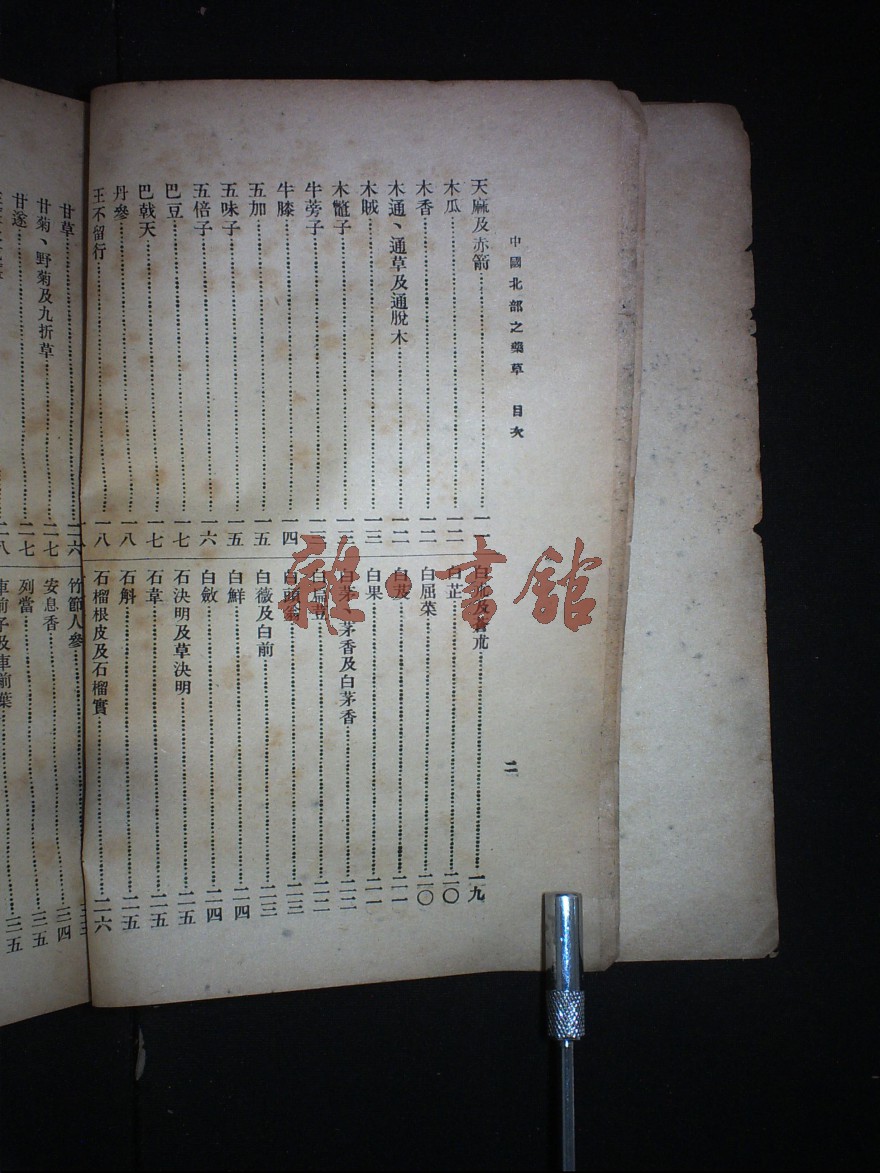 中國北部之藥草 目次
二
天麻及赤箭……一二
木瓜……一二
木香……一二
木通、通草及通脫木……一二
木賊……一三
木鼈子……一三
牛蒡子……一三
牛膝……一四
五加……一五
五味子……一五
五倍子……一六
巴豆……一七
巴戟天……一七
丹參……一八
王不留行……一八
白朮及蒼朮……一九
白芷……二〇
白屈菜……二〇
白及……二一
白果……二一
白茅、茅香及白茅香……二二
白扁豆……二二
白頭翁……二三
白薇及白前……二三
白鮮……二四
白斂……二四
石決明及草決明……二五
石韋……二五
石斛……二五
石榴根皮及石榴實……二六
甘草……二六
甘菊、野菊及九折草……二七
甘遂……二七
二八
竹節人參……三三
安息香……三四
列當……三五
車前子及車前葉……三五
雜·書館